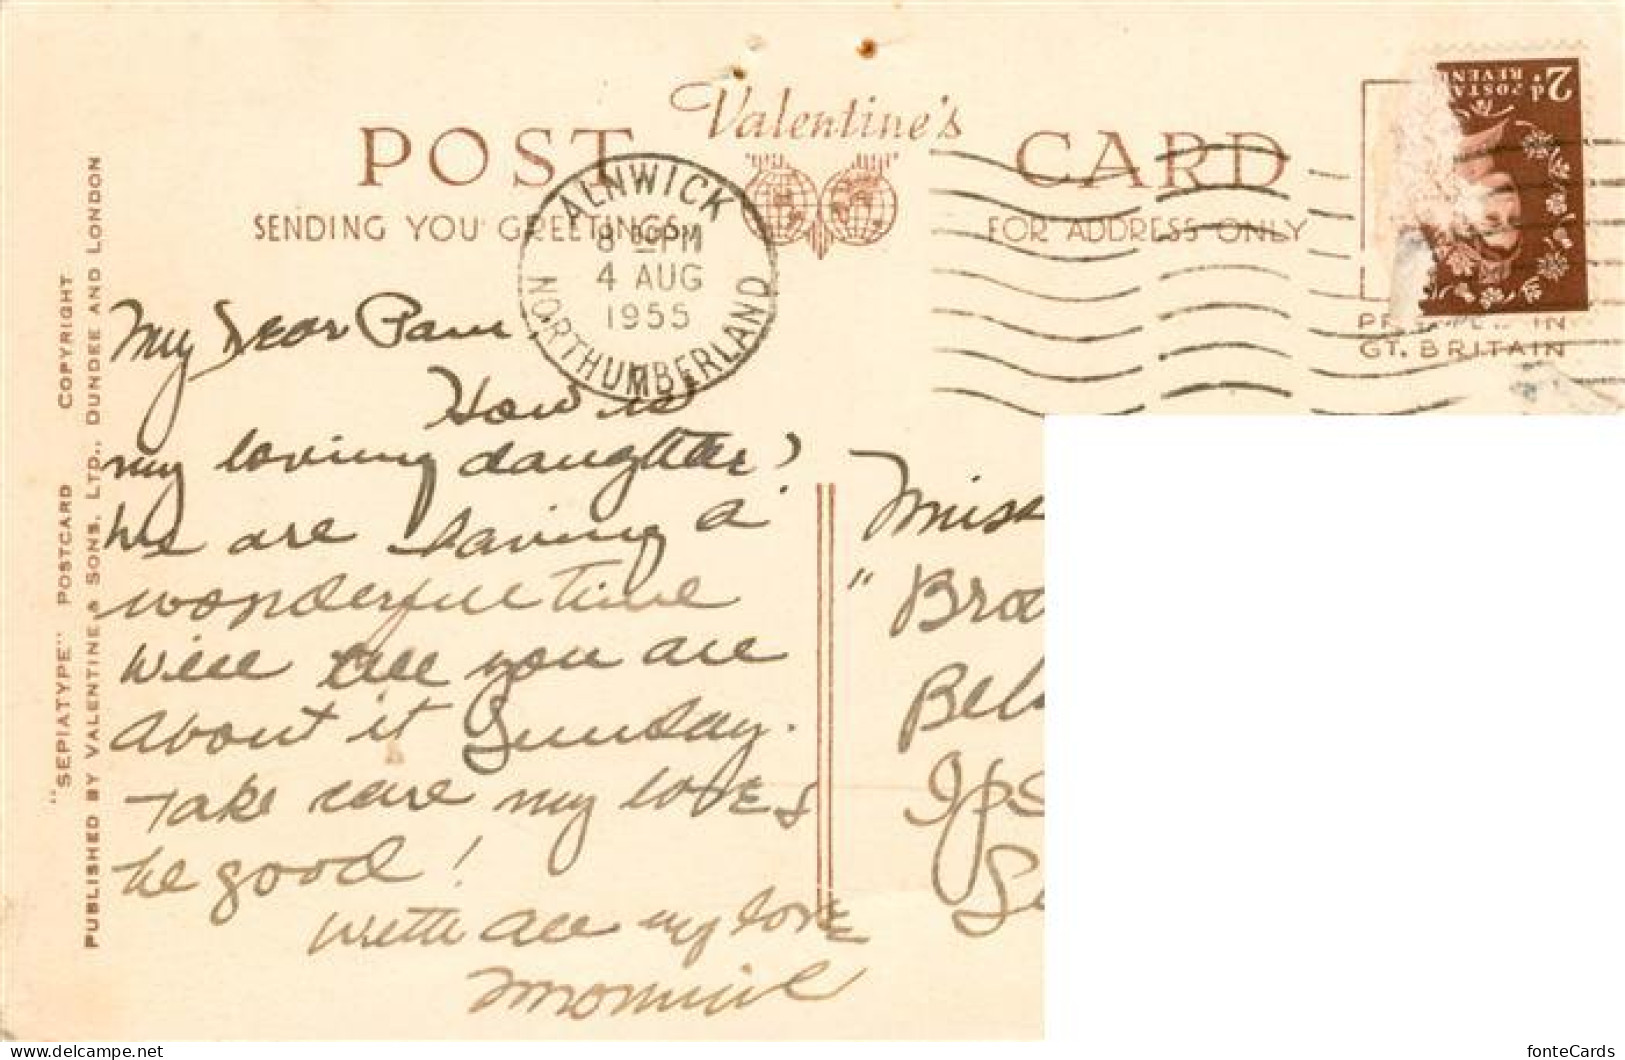 Valentine's
POST CARD
SENDING YOU GREETINGS
FOR ADDRESS ONLY
ALNWICK
8 PM
4 AUG
1955
NORTHUMBERLAND
2d
POSTA
REVEN
PRINTED IN
GT. BRITAIN
"SEPIATYPE" POSTCARD COPYRIGHT
PUBLISHED BY VALENTINE & SONS, LTD., DUNDEE AND LONDON
My Dear Pam,
How is
my loving daughter?
We are having a
wonderful time
will tell you all
about it Sunday.
Take care my love &
be good!
With all my love
Mommie
Miss
"Bro
Bel
Ips
Su
fonteCards
www.delcampe.net